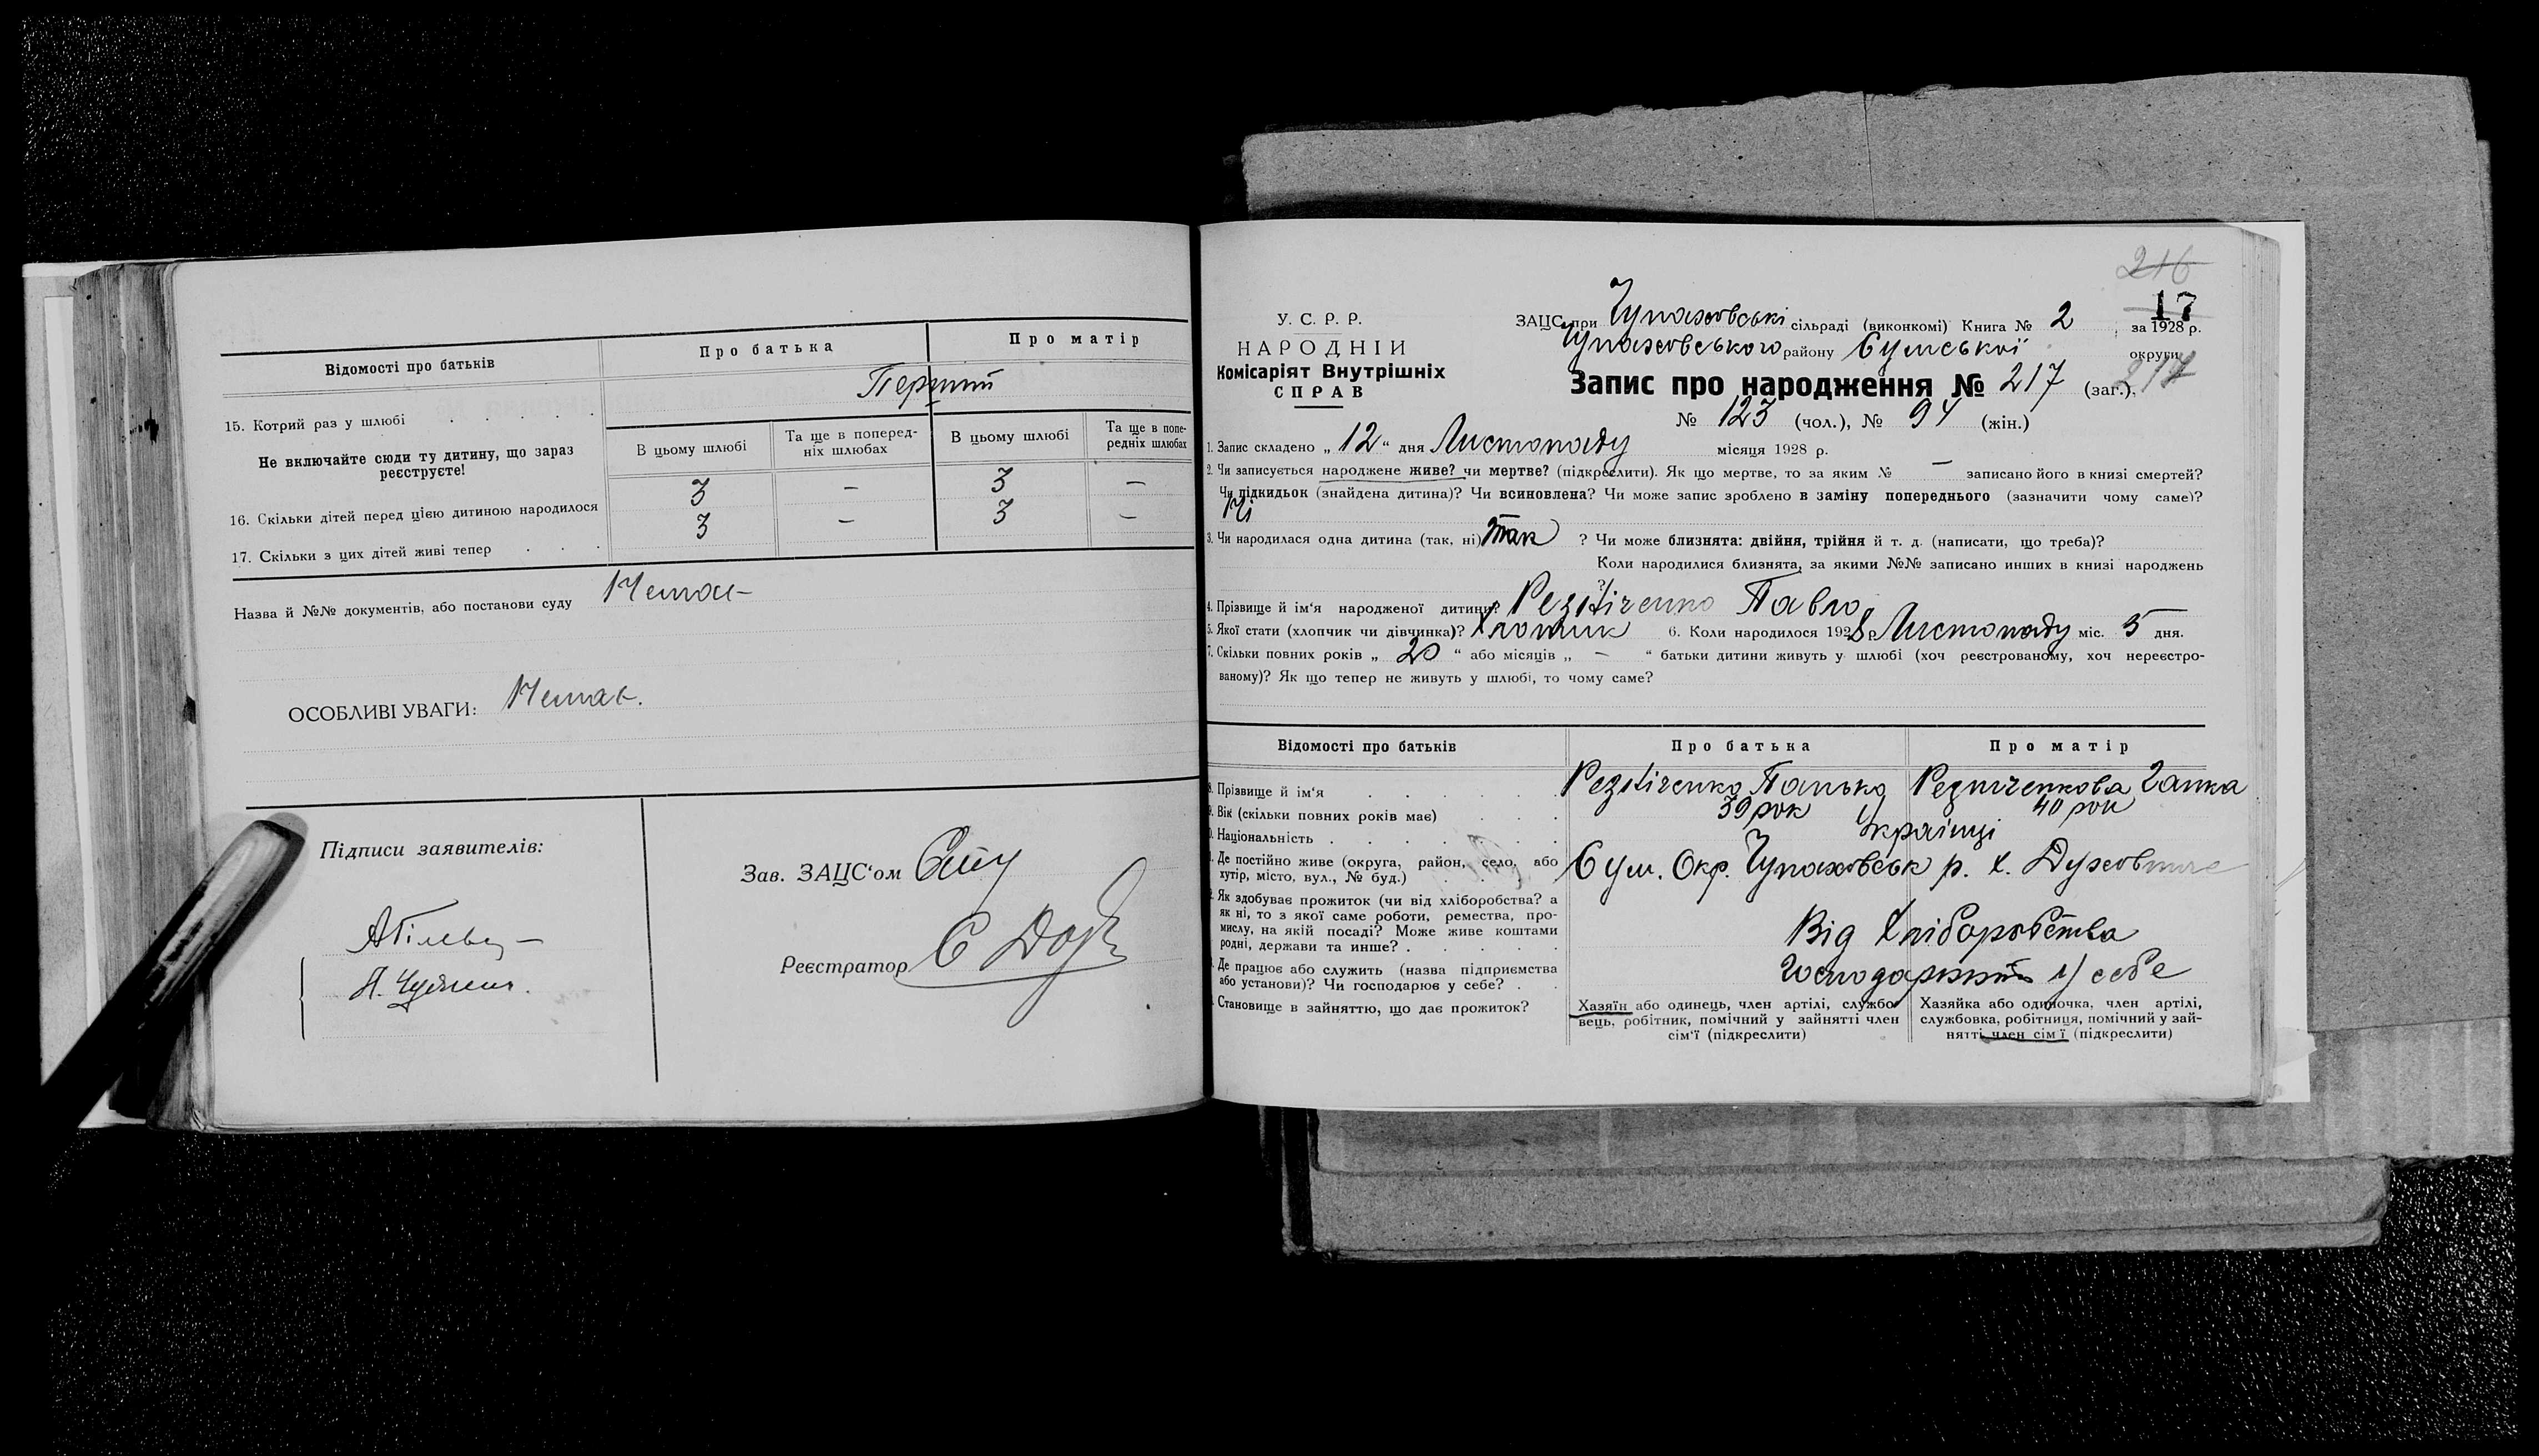 Відомості про батьків
Про батька
Про матір
15. Котрий раз у шлюбі
Перший
Не включайте сюди ту дитину, що зараз реєструєте!
В цьому шлюбі
Та ще в поперед-
ніх шлюбах
В цьому шлюбі
Та ще в попе-
редніх шлюбах
16. Скільки дітей перед цією дитиною народилося
3 — 3 —
17. Скільки з цих дітей живі тепер
3 — 3 —
Назва й №№ документів, або постанови суду Немає
ОСОБЛИВІ УВАГИ: Немає.
Підписи заявителів:
Зав. ЗАЦС'ом
Реєстратор
216
17
У. С. Р. Р.
НАРОДНІЙ
Комісаріят Внутрішніх
СПРАВ
ЗАЦС при Чупахівські сільраді (виконкомі) Книга № 2 за 1928 р.
Чупахівського району Сумської округи
Запис про народження № 217 (заг.), 217
№ 123 (чол.), № 94 (жін.)
1. Запис складено „ 12 " дня Листопаду місяця 1928 р.
2. Чи записується народжене живе? чи мертве? (підкреслити). Як що мертве, то за яким № — записано його в книзі смертей?
Чи підкидьок (знайдена дитина)? Чи всиновлена? Чи може запис зроблено в заміну попереднього (зазначити чому саме)?
Ні
3. Чи народилася одна дитина (так, ні) так ? Чи може близнята: двійня, трійня й т. д. (написати, що треба)?
Коли народилися близнята, за якими №№ записано инших в книзі народжень
?
4. Прізвище й ім'я народженої дитини? Резніченко Павло
5. Якої стати (хлопчик чи дівчинка)? Хлопчик 6. Коли народилося 1928 р. Листопаду міс. 5 дня.
7. Скільки повних років „ 20 " або місяців „ — " батьки дитини живуть у шлюбі (хоч реєстрованому, хоч нереєстро-
ваному)? Як що тепер не живуть у шлюбі, то чому саме?
Відомості про батьків
Про батька
Про матір
8. Прізвище й ім'я
Резніченко Панько
Резніченкова Ганка
9. Вік (скільки повних років має)
39 рок
40 рок
Національність
Українці
Де постійно живе (округа, район, село, або
хутір, місто, вул., № буд.)
Сум. Окр. Чупахівськ р. х.
Як здобуває прожиток (чи від хліборобства? а
як ні, то з якої саме роботи, ремества, про-
мислу, на якій посаді? Може живе коштами
родні, держави та инше?
Від Хліборобства
Де працює або служить (назва підприємства
або установи)? Чи господарює у себе?
у себе
Становище в зайняттю, що дає прожиток?
Хазяїн або одинець, член артілі, службо-
вець, робітник, помічний у зайнятті член
сім'ї (підкреслити)
Хазяйка або одиночка, член артілі,
службовка, робітниця, помічний у зай-
нятті член сім'ї (підкреслити)